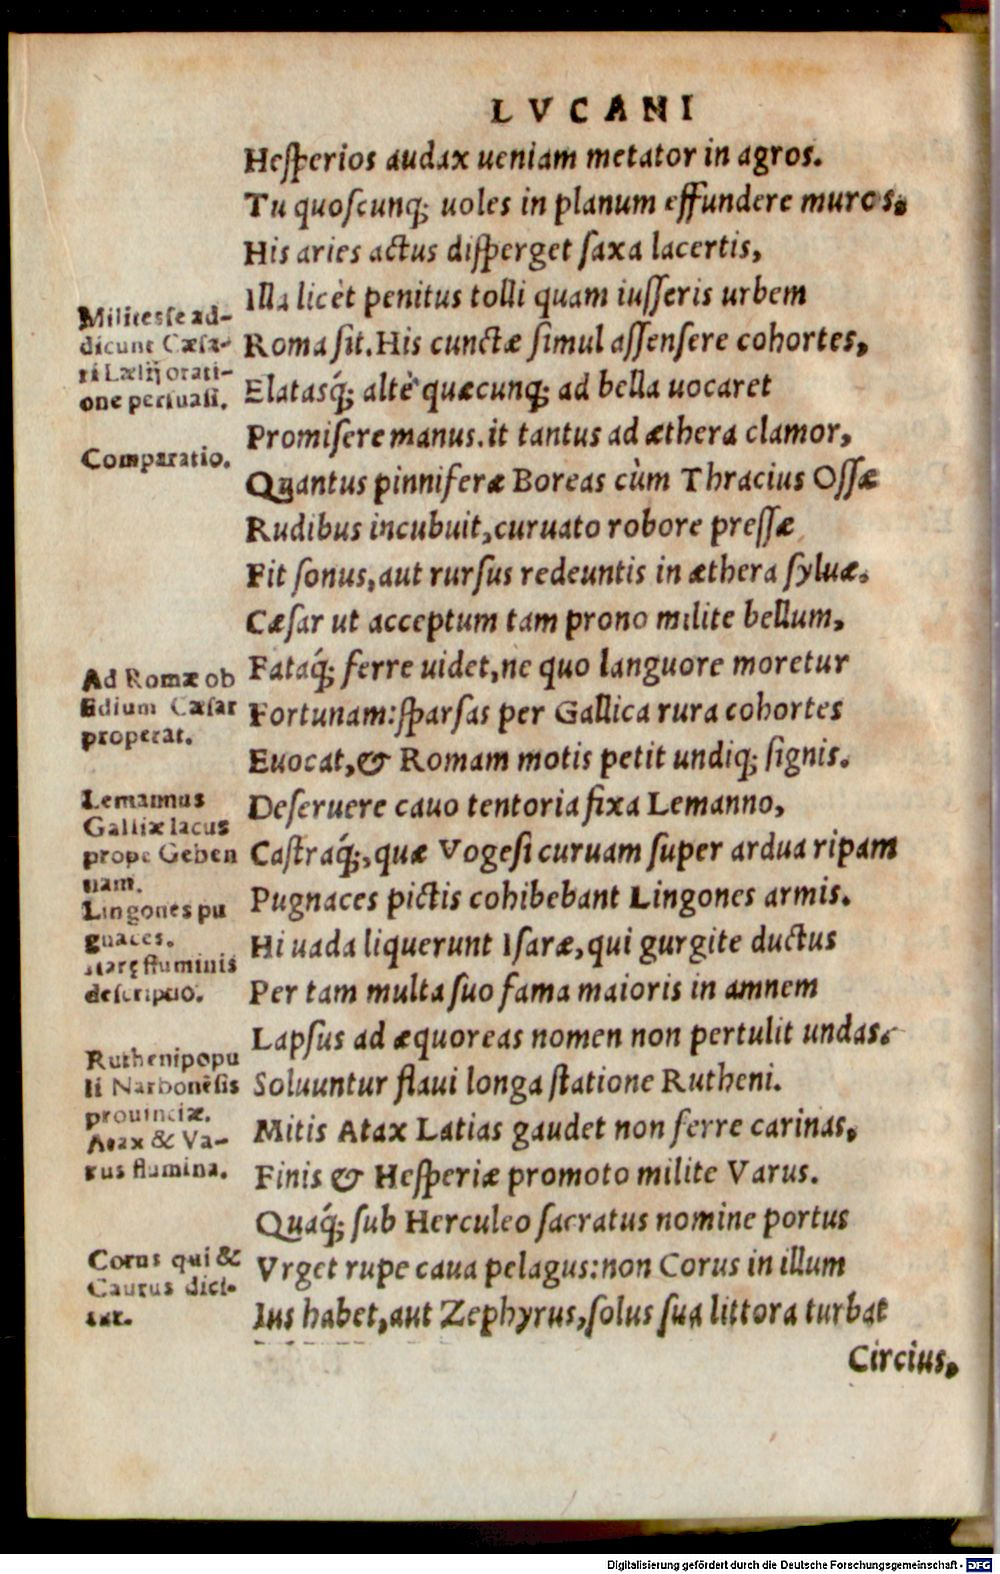 LVCANI
Hesperios audax ueniam metator in agros.
Tu quoscunq; uoles in planum effundere muros,
His aries actus disperget saxa lacertis,
Illa licèt penitus tolli quam iusseris urbem
Roma sit. His cunctæ simul assensere cohortes,
Elatasq́; altè quæcunq; ad bella uocaret
Promisere manus. it tantus ad æthera clamor,
Quantus pinniferæ Boreas cùm Thracius Ossæ
Rudibus incubuit, curuato robore pressæ
Fit sonus, aut rursus redeuntis in æthera syluæ.
Cæsar ut acceptum tam prono milite bellum,
Fataq́; ferre uidet, ne quo languore moretur
Fortunam: sparsas per Gallica rura cohortes
Euocat, & Romam motis petit undiq; signis.
Deseruere cauo tentoria fixa Lemanno,
Castraq́;, quæ Vogesi curuam super ardua ripam
Pugnaces pictis cohibebant Lingones armis.
Hi uada liquerunt Isaræ, qui gurgite ductus
Per tam multa suo fama maioris in amnem
Lapsus ad æquoreas nomen non pertulit undas.
Soluuntur flaui longa statione Rutheni.
Mitis Atax Latias gaudet non ferre carinas,
Finis & Hesperiæ promoto milite Varus.
Quaq́; sub Herculeo sacratus nomine portus
Vrget rupe caua pelagus: non Corus in illum
Ius habet, aut Zephyrus, solus sua littora turbat
Circius,
Milites se ad-
dicunt Cæsa-
ri Lælij orati-
one persuasi.
Comparatio.
Ad Romæ ob
sidium Cæsar
properat.
Lemannus
Galliæ lacus
prope Geben
nam.
Lingones pu
gnaces.
Isaræ fluminis
descriptio.
Rutheni popu
li Narbonēsis
prouinciæ.
Atax & Va-
rus flumina.
Corus qui &
Caurus dici-
tur.
Digitalisierung gefördert durch die Deutsche Forschungsgemeinschaft - DFG